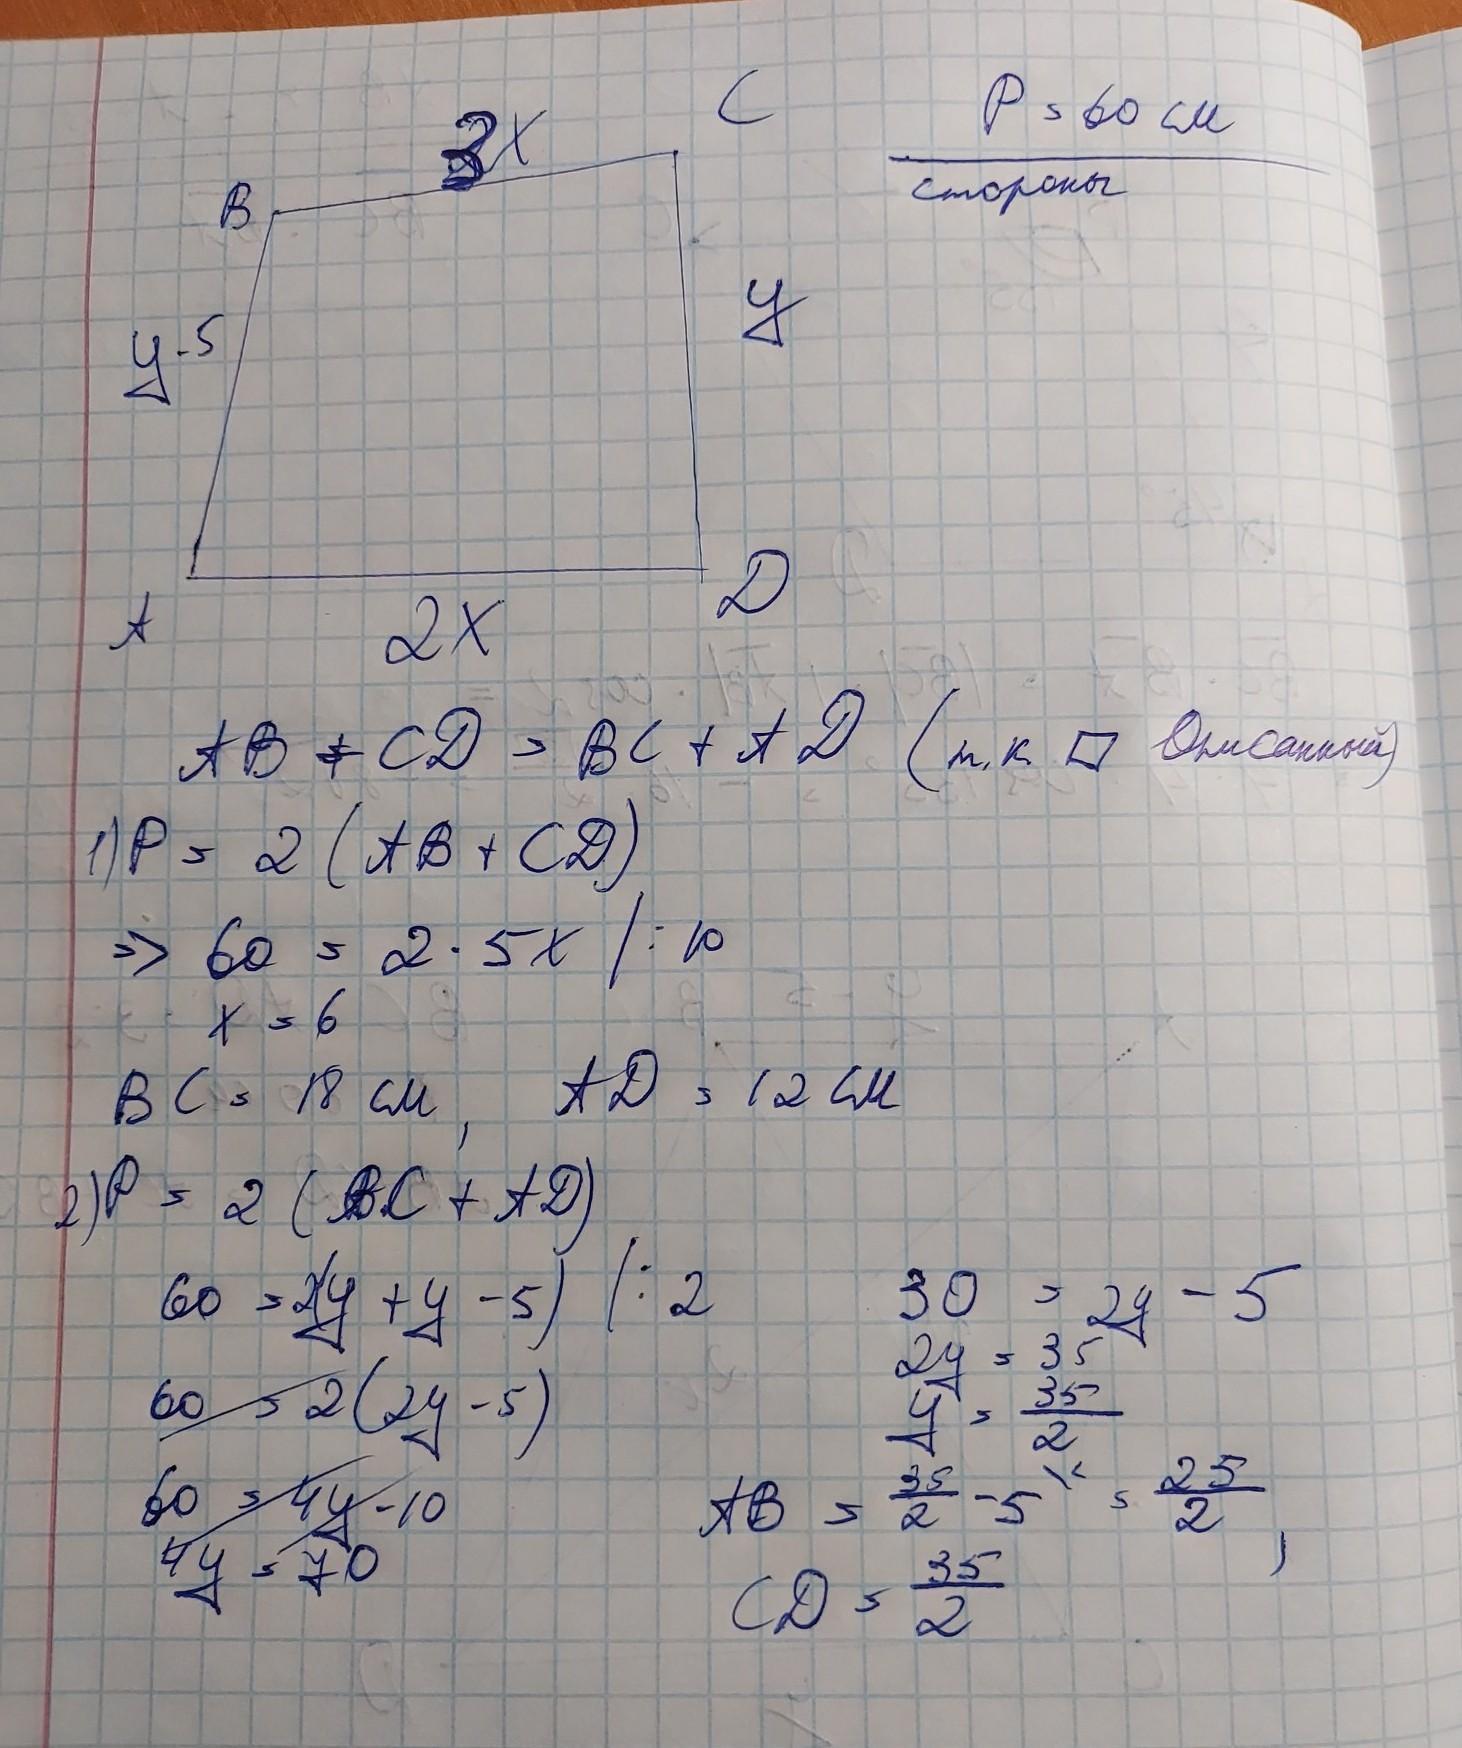 3x
C
P = 60 см
стороны
B
y-5
y
A
2x
D
AB + CD = BC + AD (т.к. ▱ Описанный)
1) P = 2 (AB + CD)
=> 60 = 2 · 5x /: 10
x = 6
BC = 18 см, AD = 12 см
2) P = 2 (BC + AD)
60 = 2(y + y - 5) /: 2
60 = 2(2y - 5)
60 = 4y - 10
4y = 70
30 = 2y - 5
2y = 35
y = 35/2
AB = 35/2 - 5 = 25/2,
CD = 35/2